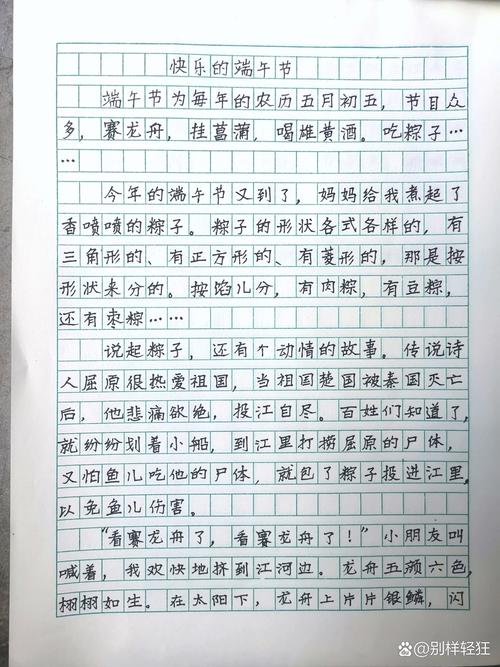 快乐的端午节
端午节为每年的农历五月初五，节目众
多，赛龙舟，挂菖蒲，喝雄黄酒。吃粽子…
…
今年的端午节又到了，妈妈给我煮起了
香喷喷的粽子。粽子的形状各式各样的，有
三角形的、有正方形的、有菱形的，那是按
形状来分的。按馅儿分，有肉粽，有豆粽，
还有枣粽……
说起粽子，还有个动情的故事。传说诗
人屈原很热爱祖国，当祖国楚国被秦国灭亡
后，他悲痛欲绝，投江自尽。百姓们知道了，
就纷纷划着小船，到江里打捞屈原的尸体，
又怕鱼儿吃他的尸体，就包了粽子投进江里，
以免鱼儿伤害。
“看赛龙舟了，看赛龙舟了！”小朋友叫
喊着，我欢快地挤到江河边。龙舟五颜六色，
栩栩如生。在太阳下，龙舟上片片银鳞，闪
@别样轻狂